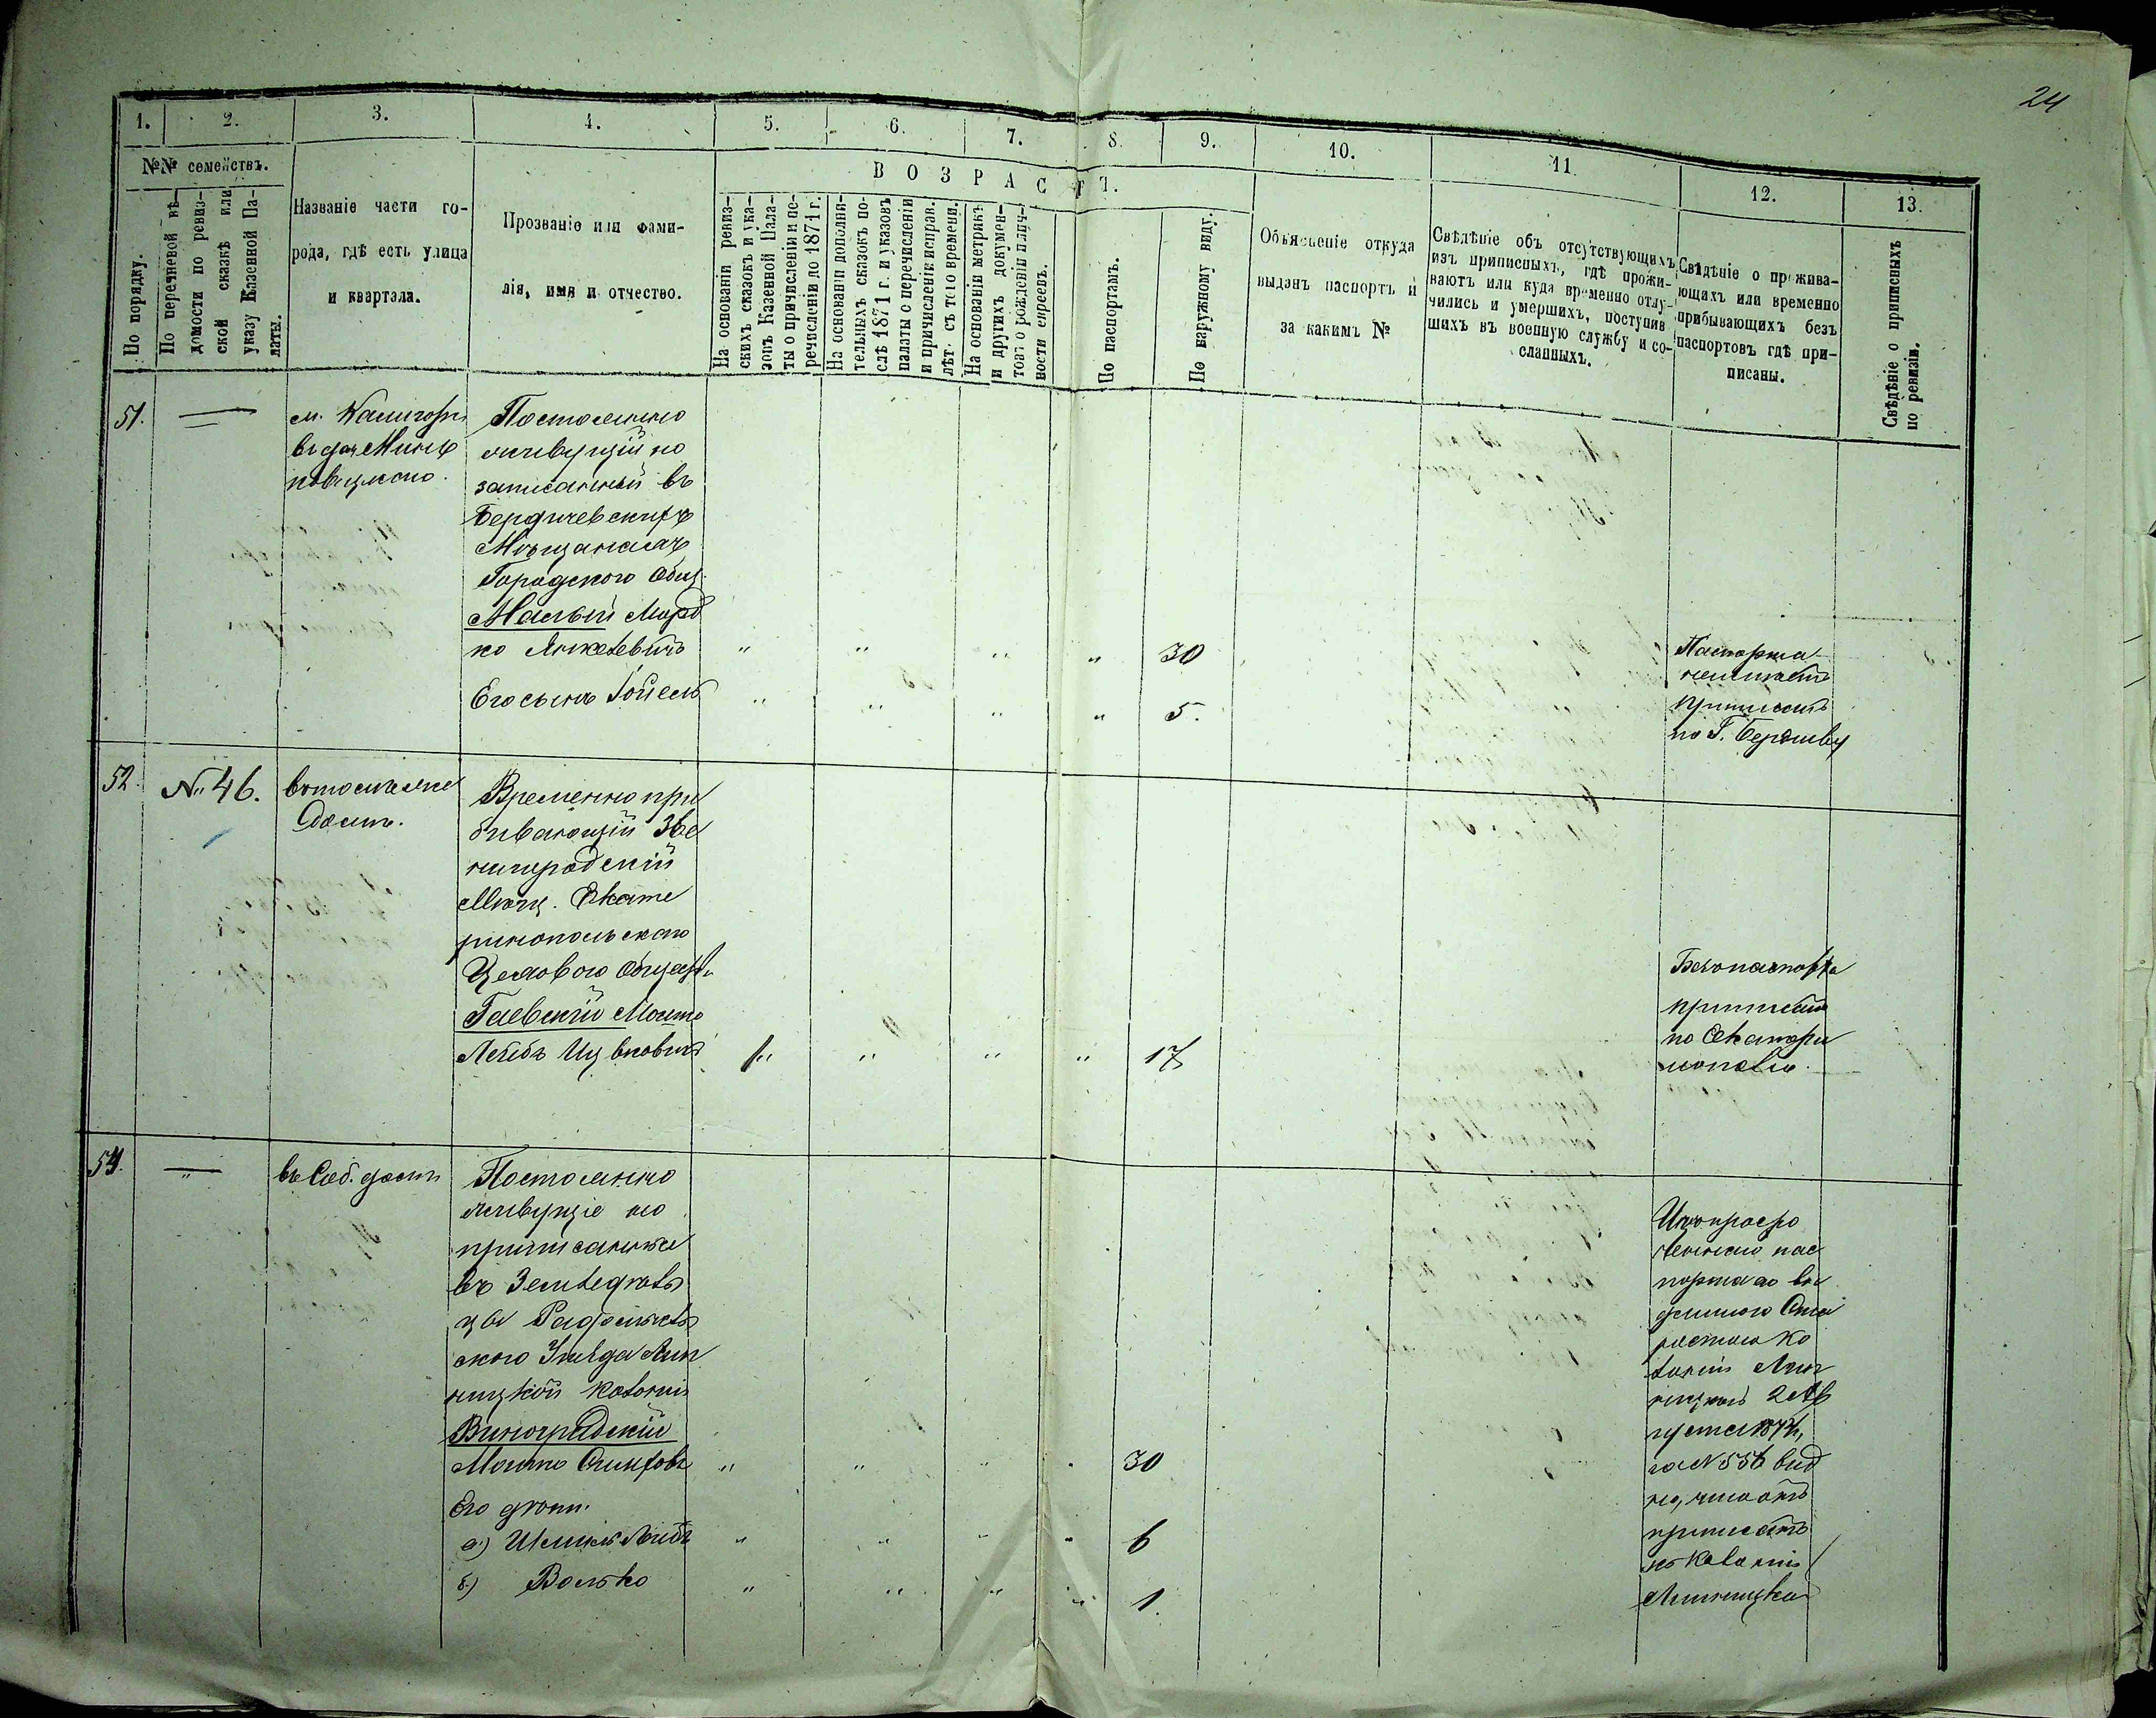 24
1. 2. 3. 4. 5. 6. 7. 8. 9. 10. 11. 12. 13.
№№ семействъ.
По порядку.
По перечневой вѣ-
домости по ревиз-
ской сказкѣ или
указу Казенной Па-
латы.
Названіе части го-
рода, гдѣ есть улица
и квартала.
Прозваніе или фами-
лія, имя и отчество.
ВОЗРАСТЪ.
На основаніи ревиз-
скихъ сказокъ и ука-
зовъ Казенной Пала-
ты о причисленіи и пе-
речисленіи до 1871 г.
На основаніи дополни-
тельныхъ сказокъ по-
слѣ 1871 г. и указовъ
палаты о перечисленіи
и причисленіи исправ.
лѣт. съ того времени.
На основаніи метрикъ
и другихъ докумен-
товъ о рожденіи и лич-
ности евреевъ.
По паспортамъ.
По наружному виду.
Объясненіе откуда
выданъ паспортъ и
за какимъ №
Свѣдѣніе объ отсутствующихъ
изъ приписныхъ, гдѣ прожи-
ваютъ или куда временно отлу-
чились и умершихъ, поступив
шихъ въ военную службу и со-
сланныхъ.
Свѣдѣніе о прожива-
ющихъ или временно
прибывающихъ безъ
паспортовъ гдѣ при-
писаны.
Свѣдѣніе о приписныхъ
по ревизіи.
51. —
м.
Постоянно
живущій но
записанный въ
Бердичевскихъ
Мѣщанахъ
Городского Общ.
Малый Морд
ко Янкелевичъ " " " " 30
Его сынъ Іойель " " " " 5.
Паспорта
неимѣетъ
приписанъ
по Г. Бердичеву
52. №46.
Временно при
бивающій Зве
нигородскій
Мѣщ. Екате
ринопольскаго
Общества
Гаевскій Мошко
Лейбъ Ицковичъ " " " " 17
Безъ паспорта
приписанъ
по Екатери
нополю.
54. — въ Соб. домѣ
Постоянно
живущіе но
приписанные
въ Земледѣль
цы Радомысль
ского Уѣзда
Колоніи
Виноградскій
Мошко " " " " 30
Его дѣти.
а.) " " " " 6
б.) Волько " " " " 1.
паспорта
Колоніи
2 Ав
густа
за №556
приписанъ
къ Колоніи